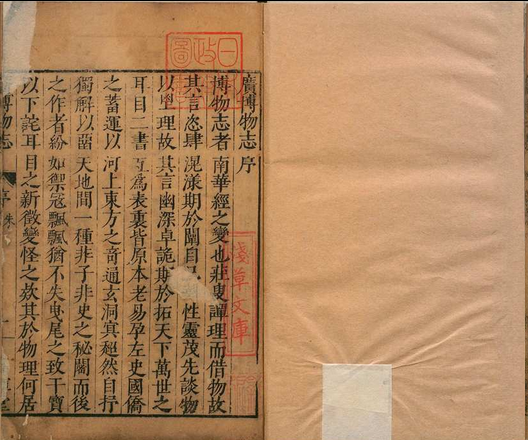 廣博物志序
博物志者南華經之變也莊叟譚理而借物故
其言恣肆滉漾期於闢自己性靈茂先談物
以理故其言幽深卓詭期於拓天下萬世之
耳目二書互為表裏皆原本老易孕左史國僑
之蓄運以河上東方之奇通玄洞冥超然自抒
獨解以留天地間一種非子非史之秘關而後
之作者紛如禦寇飄飄猶不失曳尾之致干寶
以下詫耳目之新徵變怪之欻其於物理何居
博物志
序
一
淺草文庫
日
政
圖